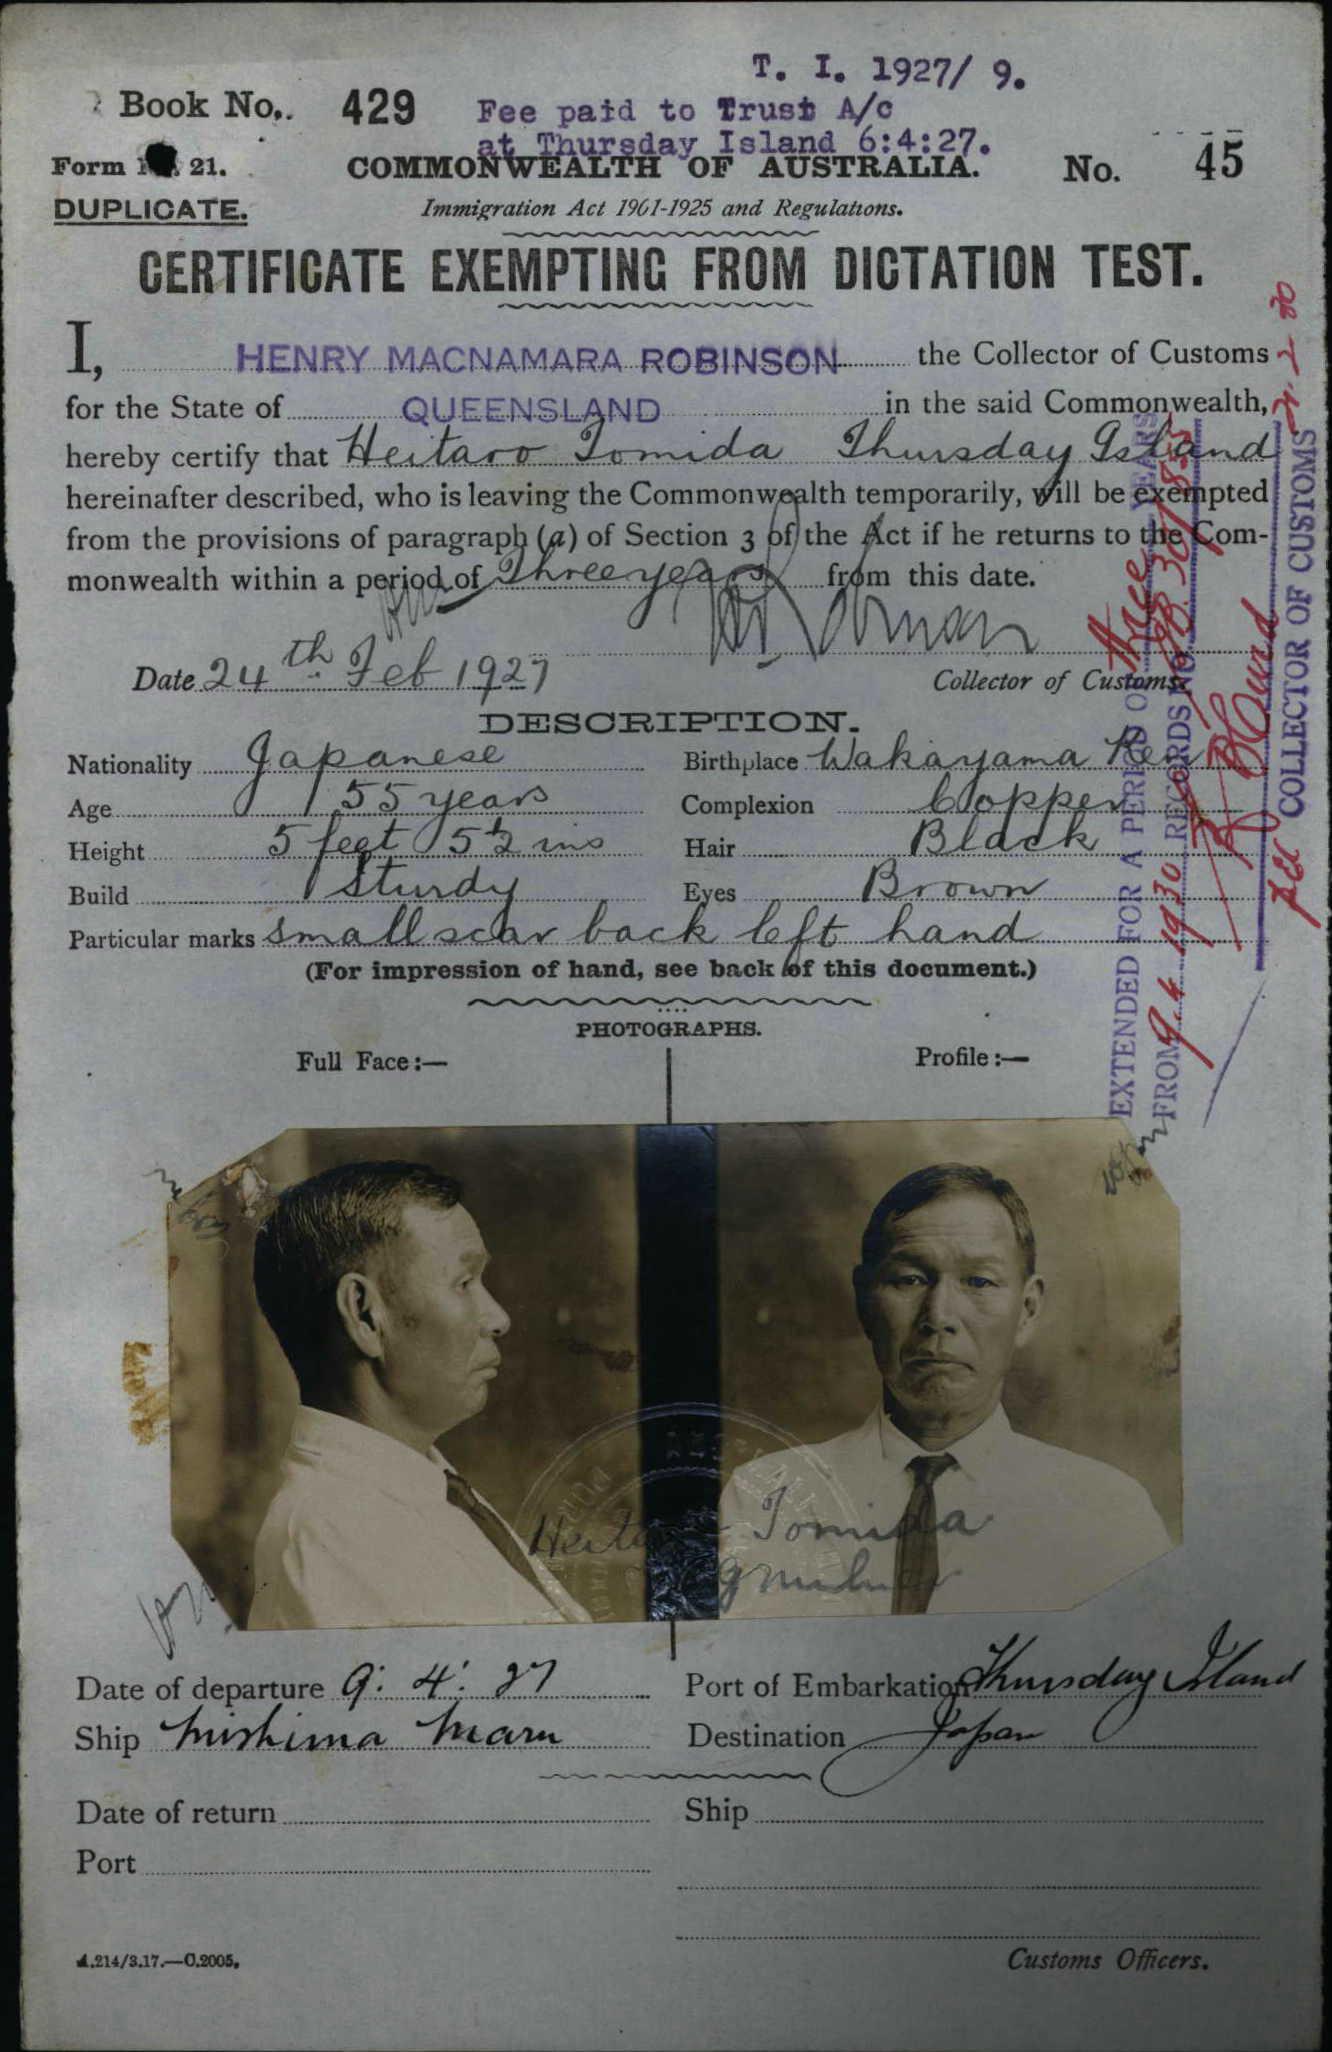 T. I. 1927/ 9.
Book No. 429
Fee paid to Trust A/c
at Thursday Island 6:4:27.
Form 21.
COMMONWEALTH OF AUSTRALIA.
No. 45
DUPLICATE.
Immigration Act 1901-1925 and Regulations.
CERTIFICATE EXEMPTING FROM DICTATION TEST.
I, HENRY MACNAMARA ROBINSON the Collector of Customs
for the State of QUEENSLAND in the said Commonwealth,
hereby certify that Heitaro Tomida Thursday Island
hereinafter described, who is leaving the Commonwealth temporarily, will be exempted
from the provisions of paragraph (a) of Section 3 of the Act if he returns to the Com-
monwealth within a period of Three years from this date.
Date 24th Feb 1927
Collector of Customs.
DESCRIPTION.
Nationality Japanese
Birthplace Wakayama Ken
Age 55 years
Complexion Copper
Height 5 feet 5½ ins
Hair Black
Build Sturdy
Eyes Brown
Particular marks small scar back left hand
(For impression of hand, see back of this document.)
PHOTOGRAPHS.
Full Face:—
Profile:—
EXTENDED FOR A PERIOD OF three YEARS
FROM 9.4.1930 RECORDS NO. 30/1855
COLLECTOR OF CUSTOMS
Heitaro Tomida
Date of departure 9: 4: 27
Port of Embarkation Thursday Island
Ship Mishima Maru
Destination Japan
Date of return
Ship
Port
A.214/3.17.—C.2005.
Customs Officers.